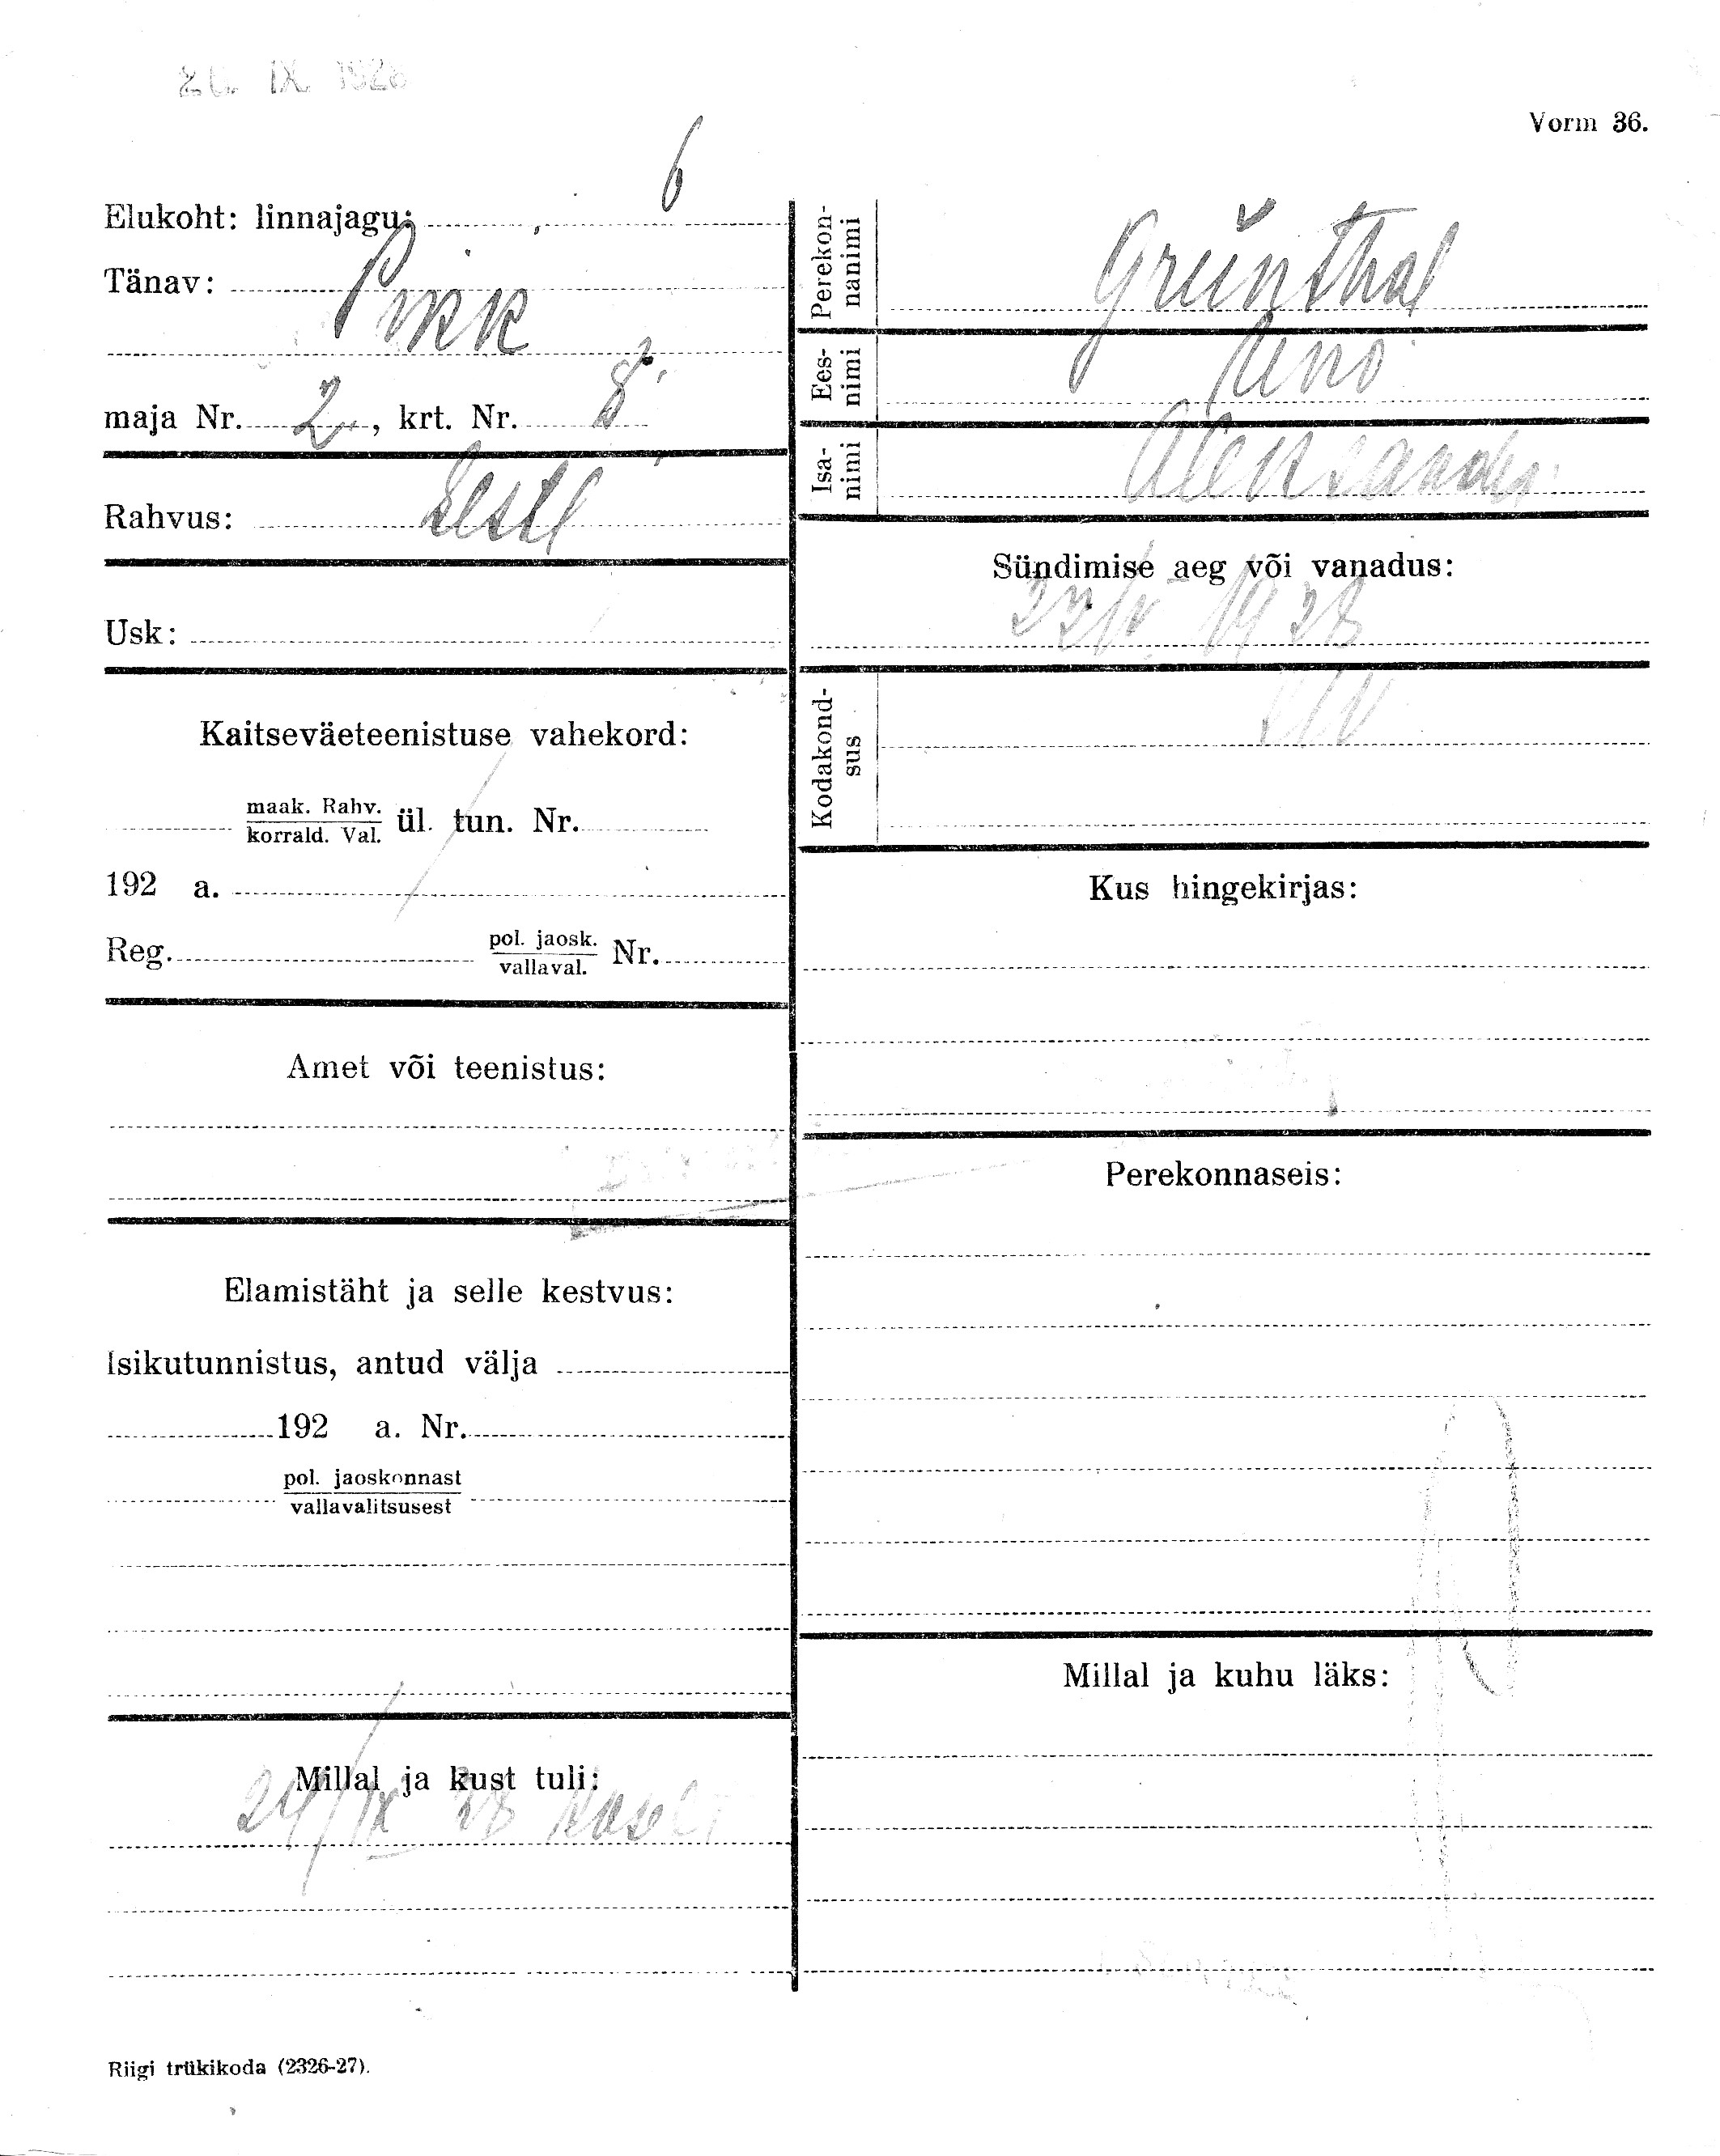 IX. 1928
Vorm 36.
Elukoht: linnajagu: 6
Tänav: Pikk
maja Nr. 2, krt. Nr. 8
Rahvus: Eesti
Usk:
Kaitseväeteenistuse vahekord:
maak. Rahv.
korrald. Val. ül. tun. Nr.
192 a.
Reg. pol. jaosk.
vallaval. Nr.
Amet või teenistus:
Elamistäht ja selle kestvus:
Isikutunnistus, antud välja
192 a. Nr.
pol. jaoskonnast
vallavalitsusest
Millal ja kust tuli:
24/IX 28
Perekon-
nanimi Grünthal
Ees-
nimi Uno
Isa-
nimi Aleksander
Sündimise aeg või vanadus:
1928
Kodakond-
sus
Kus hingekirjas:
Perekonnaseis:
Millal ja kuhu läks:
Riigi trükikoda (2326-27).